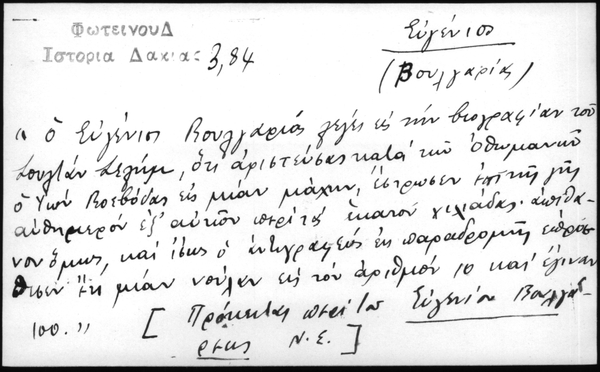 ΦωτεινουΔ
Ιστορια Δακιας 3,84
Εὐγένιος
(Βουλγαρίας)
" ὁ Εὐγένιος Βουλγαρίας λέγει εἰς τὴν βιογραφίαν τοῦ
Σουλτὰν Σελήμ, ὅτι ἀριστεύσας κατὰ τῶν Ὀθωμανῶν
ὁ Βοεβόδας εἰς μίαν μάχην, ἔστρωσεν ἐπὶ τῆς γῆς
αὐθημερὸν ἐξ' αὐτῶν περὶ τὰς ἑκατὸν χιλιάδας· ἀπίθα-
νον ὅμως, καὶ ἴσως ὁ ἀντιγραφεὺς ἐκ παραδρομῆς ἐπρόσ-
θεσεν ἔτι μίαν νούλαν εἰς τὸν ἀριθμὸν 10 καὶ ἔγιναν
100. " [ Πρόκειται περὶ τοῦ Εὐγενίου Βουλγά-
ρεως Ν.Ε. ]